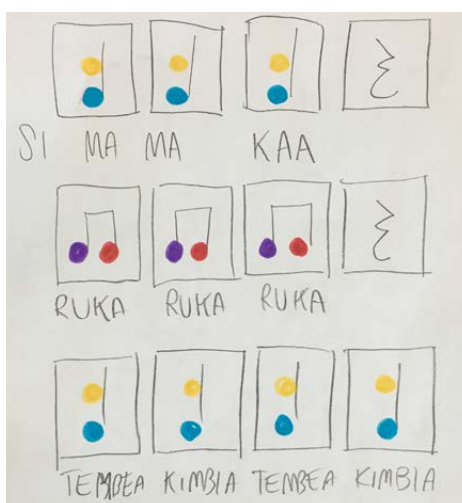 SI MA MA KAA
RUKA RUKA RUKA
TEMBEA KIMBIA TEMBEA KIMBIA